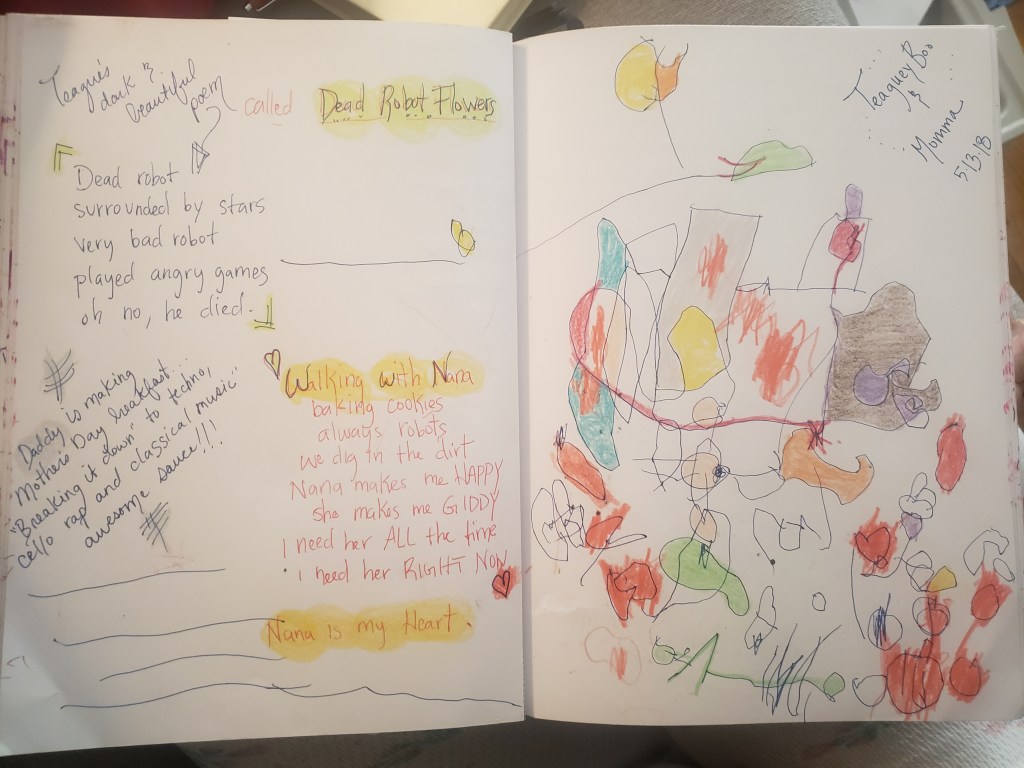 Teague's
dark &
beautiful
poem
called Dead Robot Flowers
Dead robot
surrounded by stars
very bad robot
played angry games
oh no, he died.
Daddy is making
Mother's Day breakfast.
"Breaking it down" to techno,
rap and classical music"
cello awesome sauce!!!
Walking with Nana
baking cookies
always robots
we dig in the dirt
Nana makes me HAPPY
she makes me GIDDY
I need her ALL the time
I need her RIGHT NOW
Nana is my Heart.
Teaguey Boo
&
Momma
5/13/18